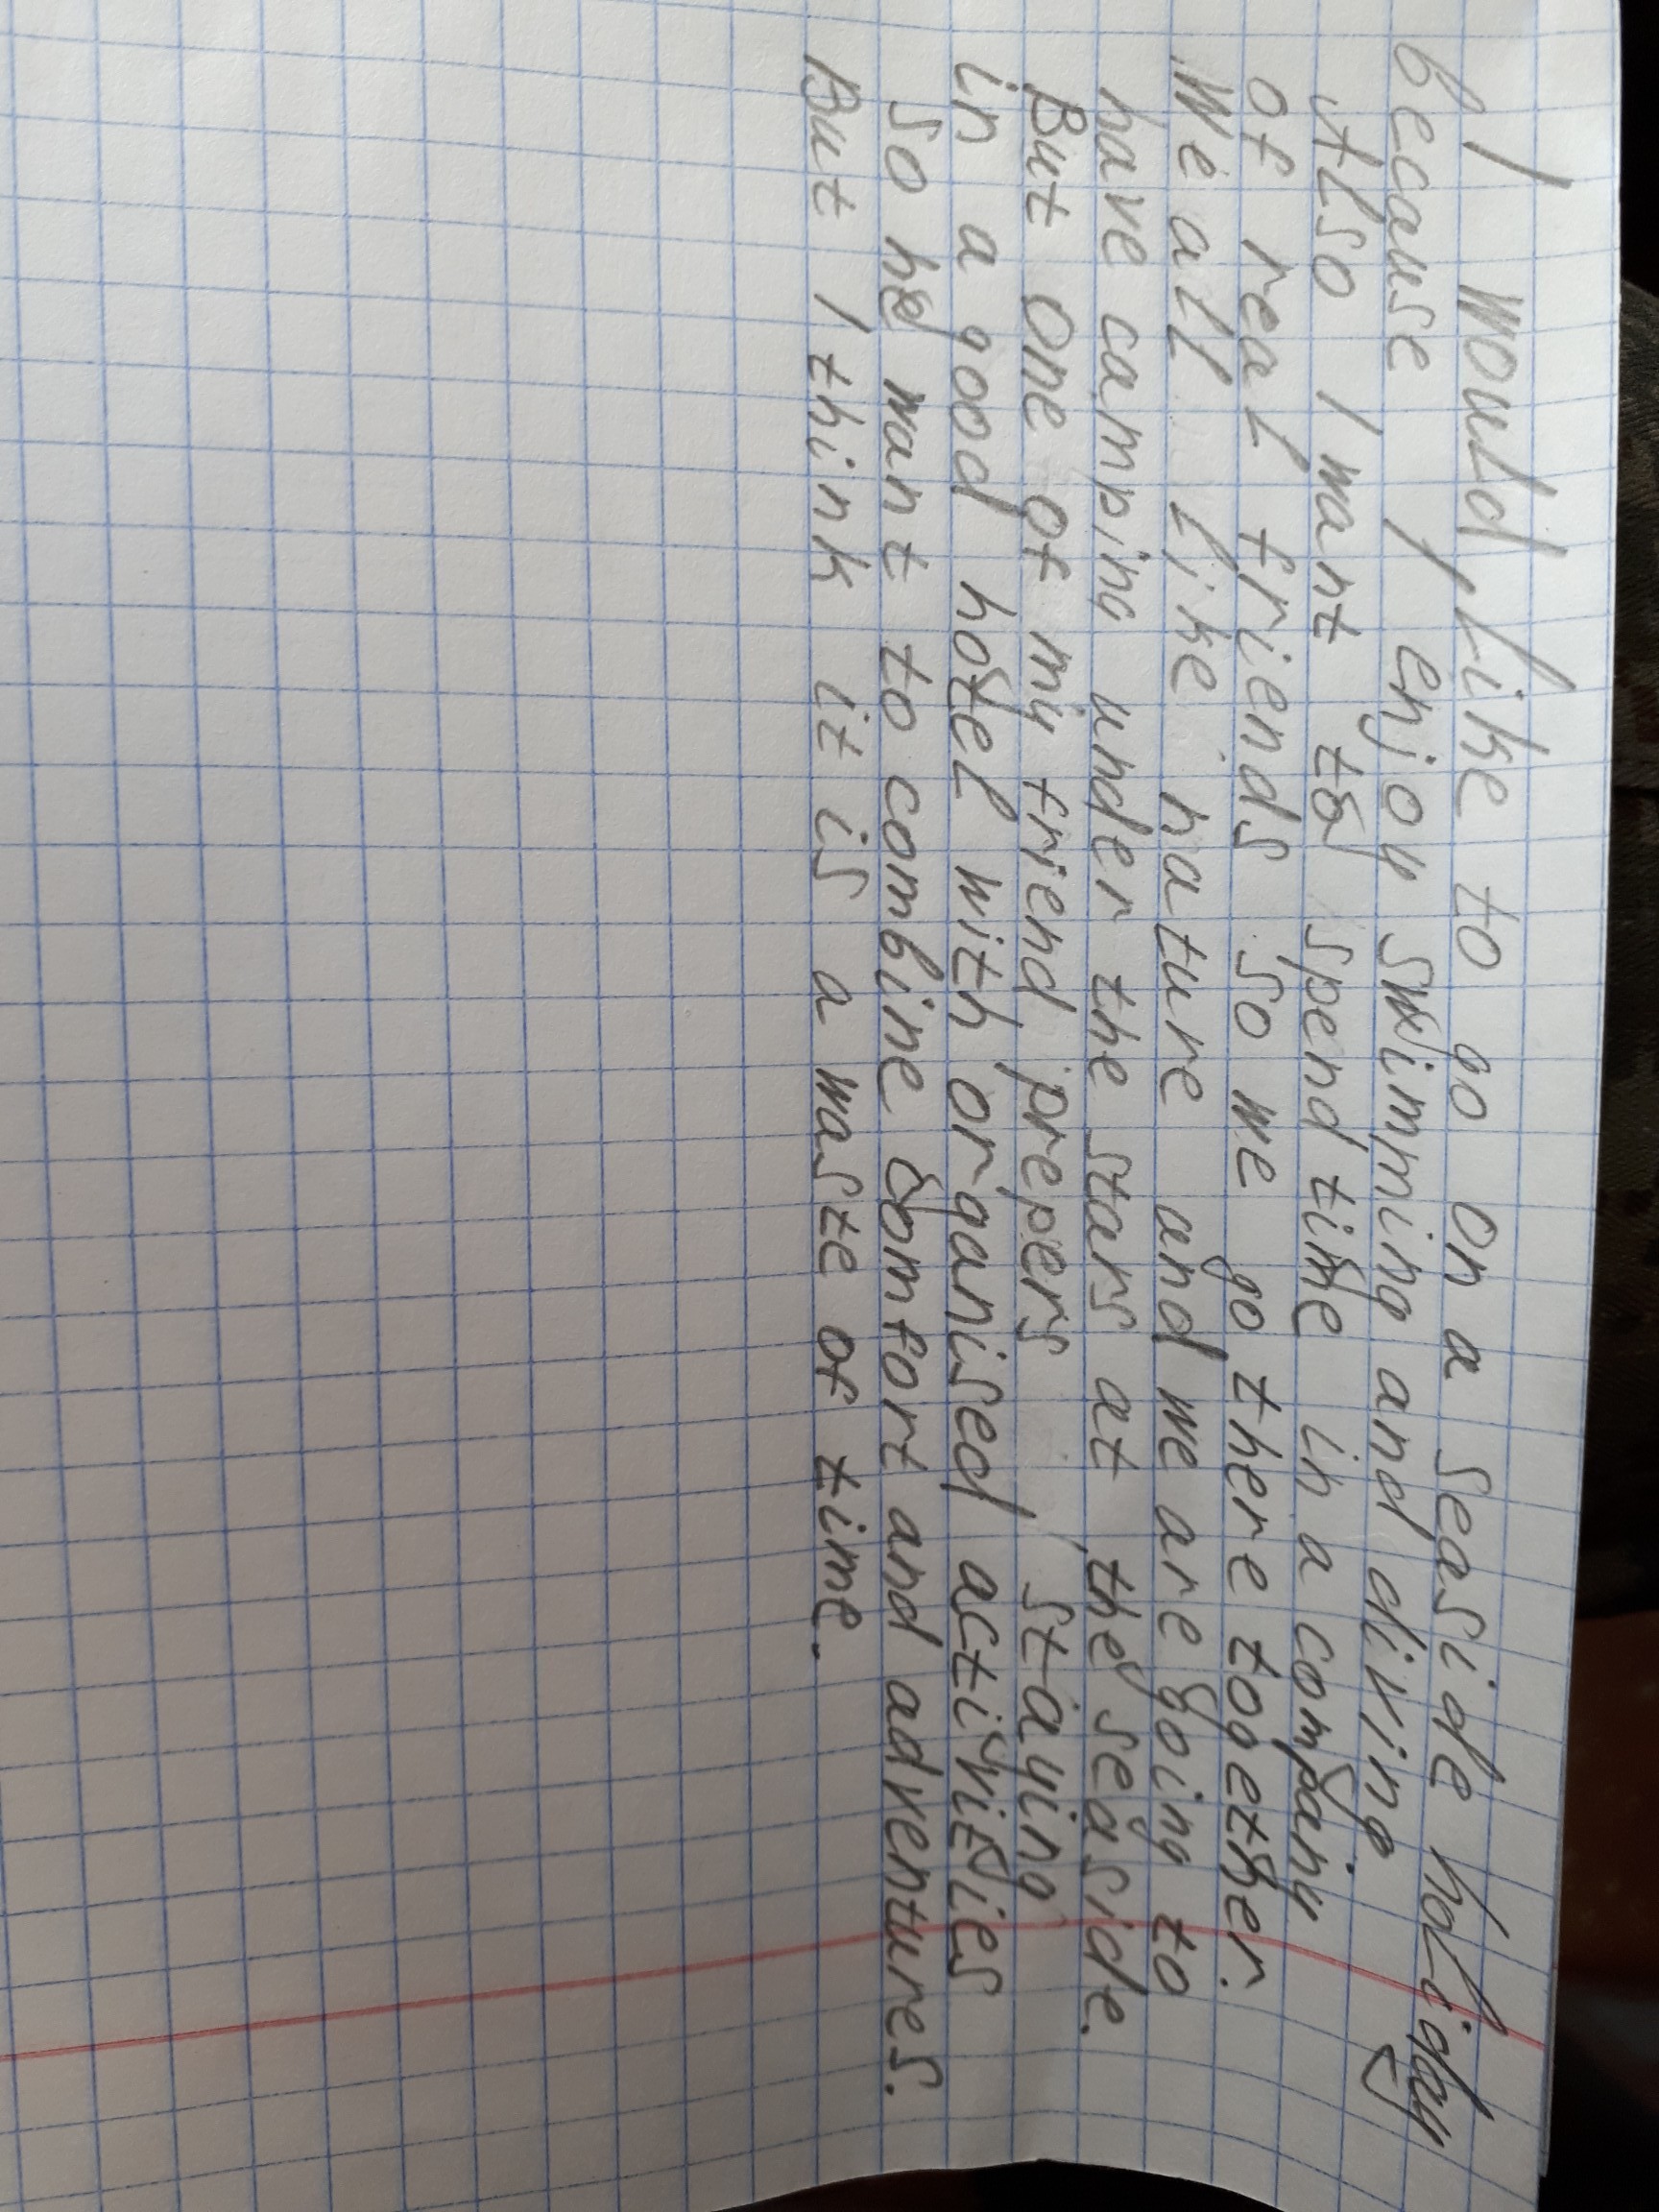 I would like to go on a seaside holiday
because I enjoy swimming and diving
Also I want to spend time in a company
of real friends so we go there together.
We all like nature and we are going to
have camping under the stars at the seaside.
But one of my friend prepers staying
in a good hotel with organised activities
so he want to combine comfort and adventures.
But I think it is a waste of time.